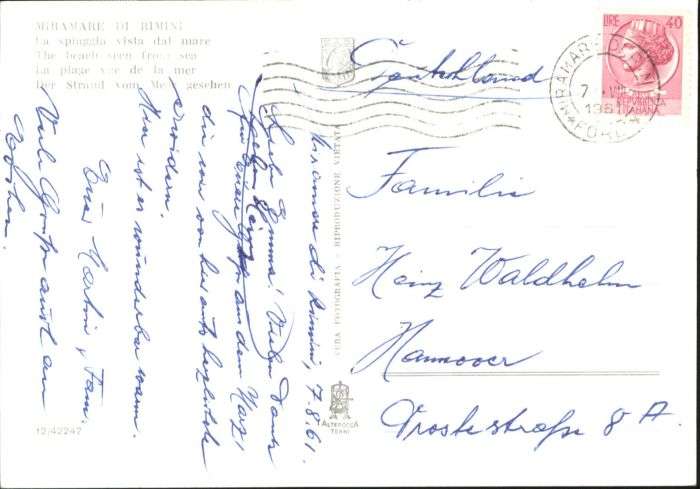 MIRAMARE DI RIMINI
La spiaggia vista dal mare
The beach seen from sea
La plage vue de la mer
Der Strand vom Meer gesehen
Miramare di Rimini, 7.8.61
Liebe Emma! Vielen Dank
für Euren aus dem Harz,
die wir von hier aus herzlichst
erwidern.
Hier ist es wunderbar warm.
Euer Martin u. Fam.
Viele Grüße auch an
12/42247
CURA FOTOGRAFIA - RIPRODUZIONE VIETATA
ALTEROCCA
TERNI
LIRE 40
REPUBBLICA
ITALIANA
MIRAMARE DI RIMINI
7 VIII
1961
Familie
Heinz Waldhelm
Hannover
Drostestraße 8 A.